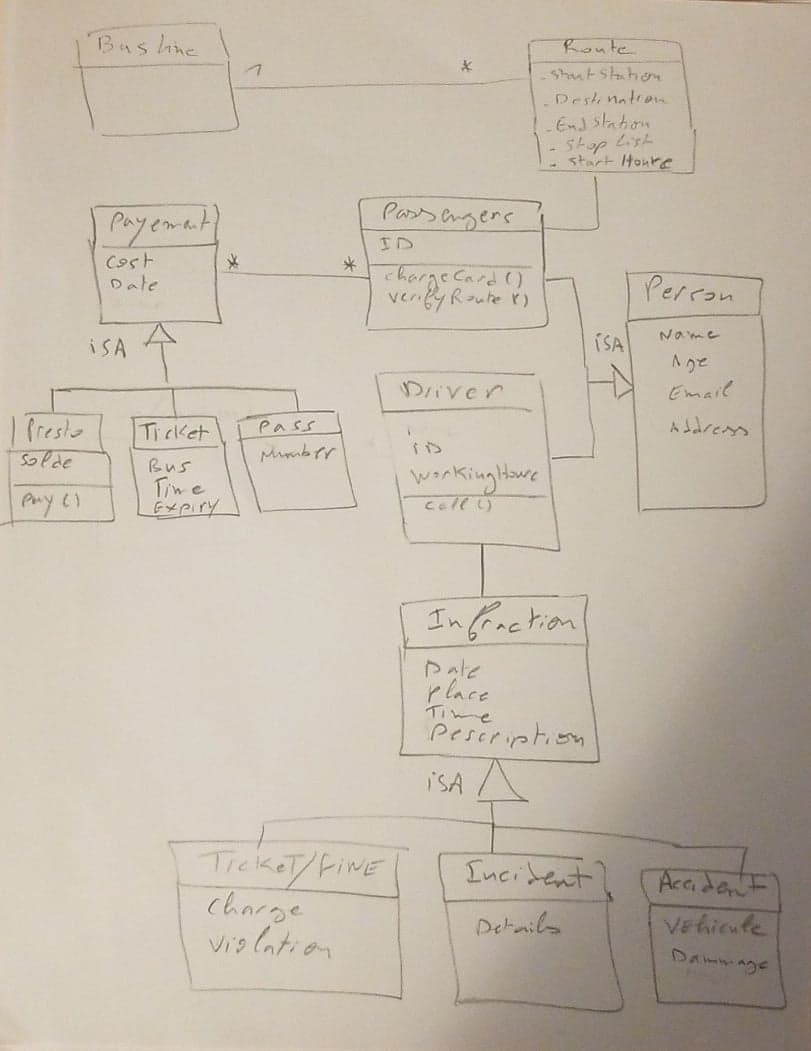 Bus Line
1
*
Route
- Start Station
- Destination
- End Station
- Stop List
- Start Houre
Payement
Cost
Date
*
*
Passengers
ID
chargeCard ()
verifyRoute ()
Person
Name
Age
Email
Address
iSA
iSA
Presto
Solde
Pay ()
Ticket
Bus
Time
Expiry
Pass
Number
Driver
iD
WorkingHoure
Call ()
Infraction
Date
Place
Time
Description
iSA
Ticket/FiNE
Charge
Violation
Incident
Details
Accident
Vehicule
Dammage